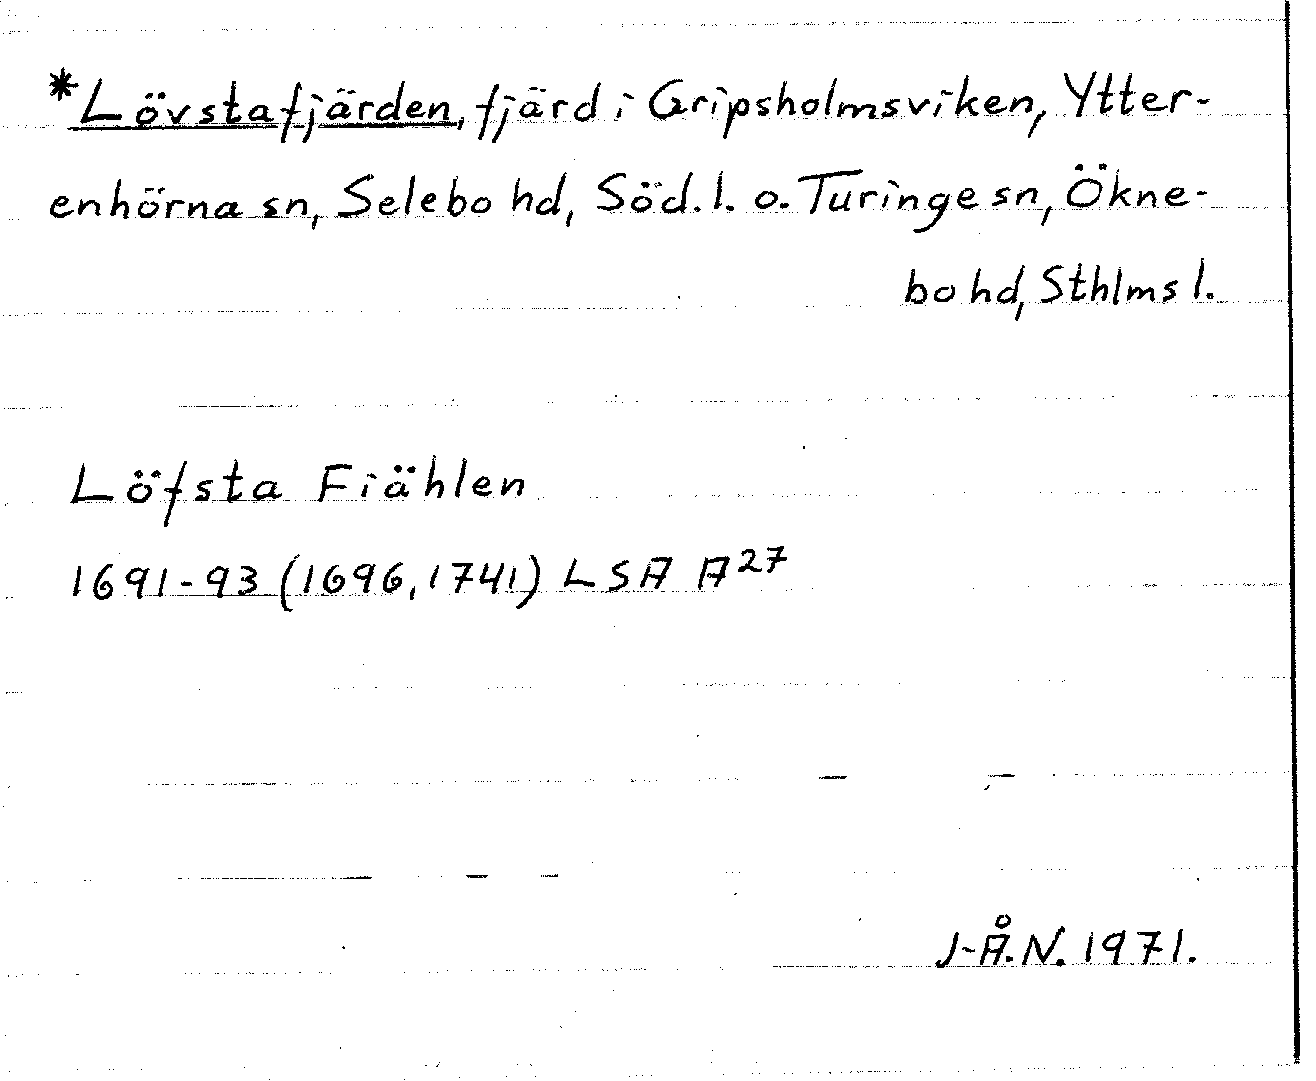 *Lövstafjärden, fjärd i Gripsholmsviken, Ytter-
enhörna sn, Selebo hd, Söd. l. o. Turinge sn, Ökne-
bo hd, Sthlms l.
Löfsta Fiählen
1691-93 (1696, 1741) LSA A27
J-Å.N. 1971.